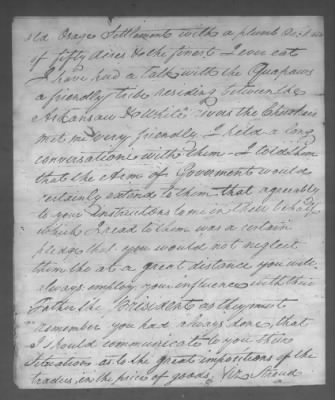 old Osage Settlement with a plumb Orchard
of fifty Acres & the finest I ever eat
I have had a talk with the Quapaws
a friendly tribe residing between the
Arkansaw & White rivers the Cherokees
met me very friendly I held a long
conversation with them - I told them
that the Arm of Goverment would
certainly extend to them that agreeably
to your instructions to me in their behalf
which I read to them was a certain
pledge that you would not neglect
them tho at a great distance you will
always employ your influence with their
Father the President as they must
remember you had always done, that
I should communicate to you their
Situations as to the great impositions of the
traders, in the price of goods, Viz Stroud